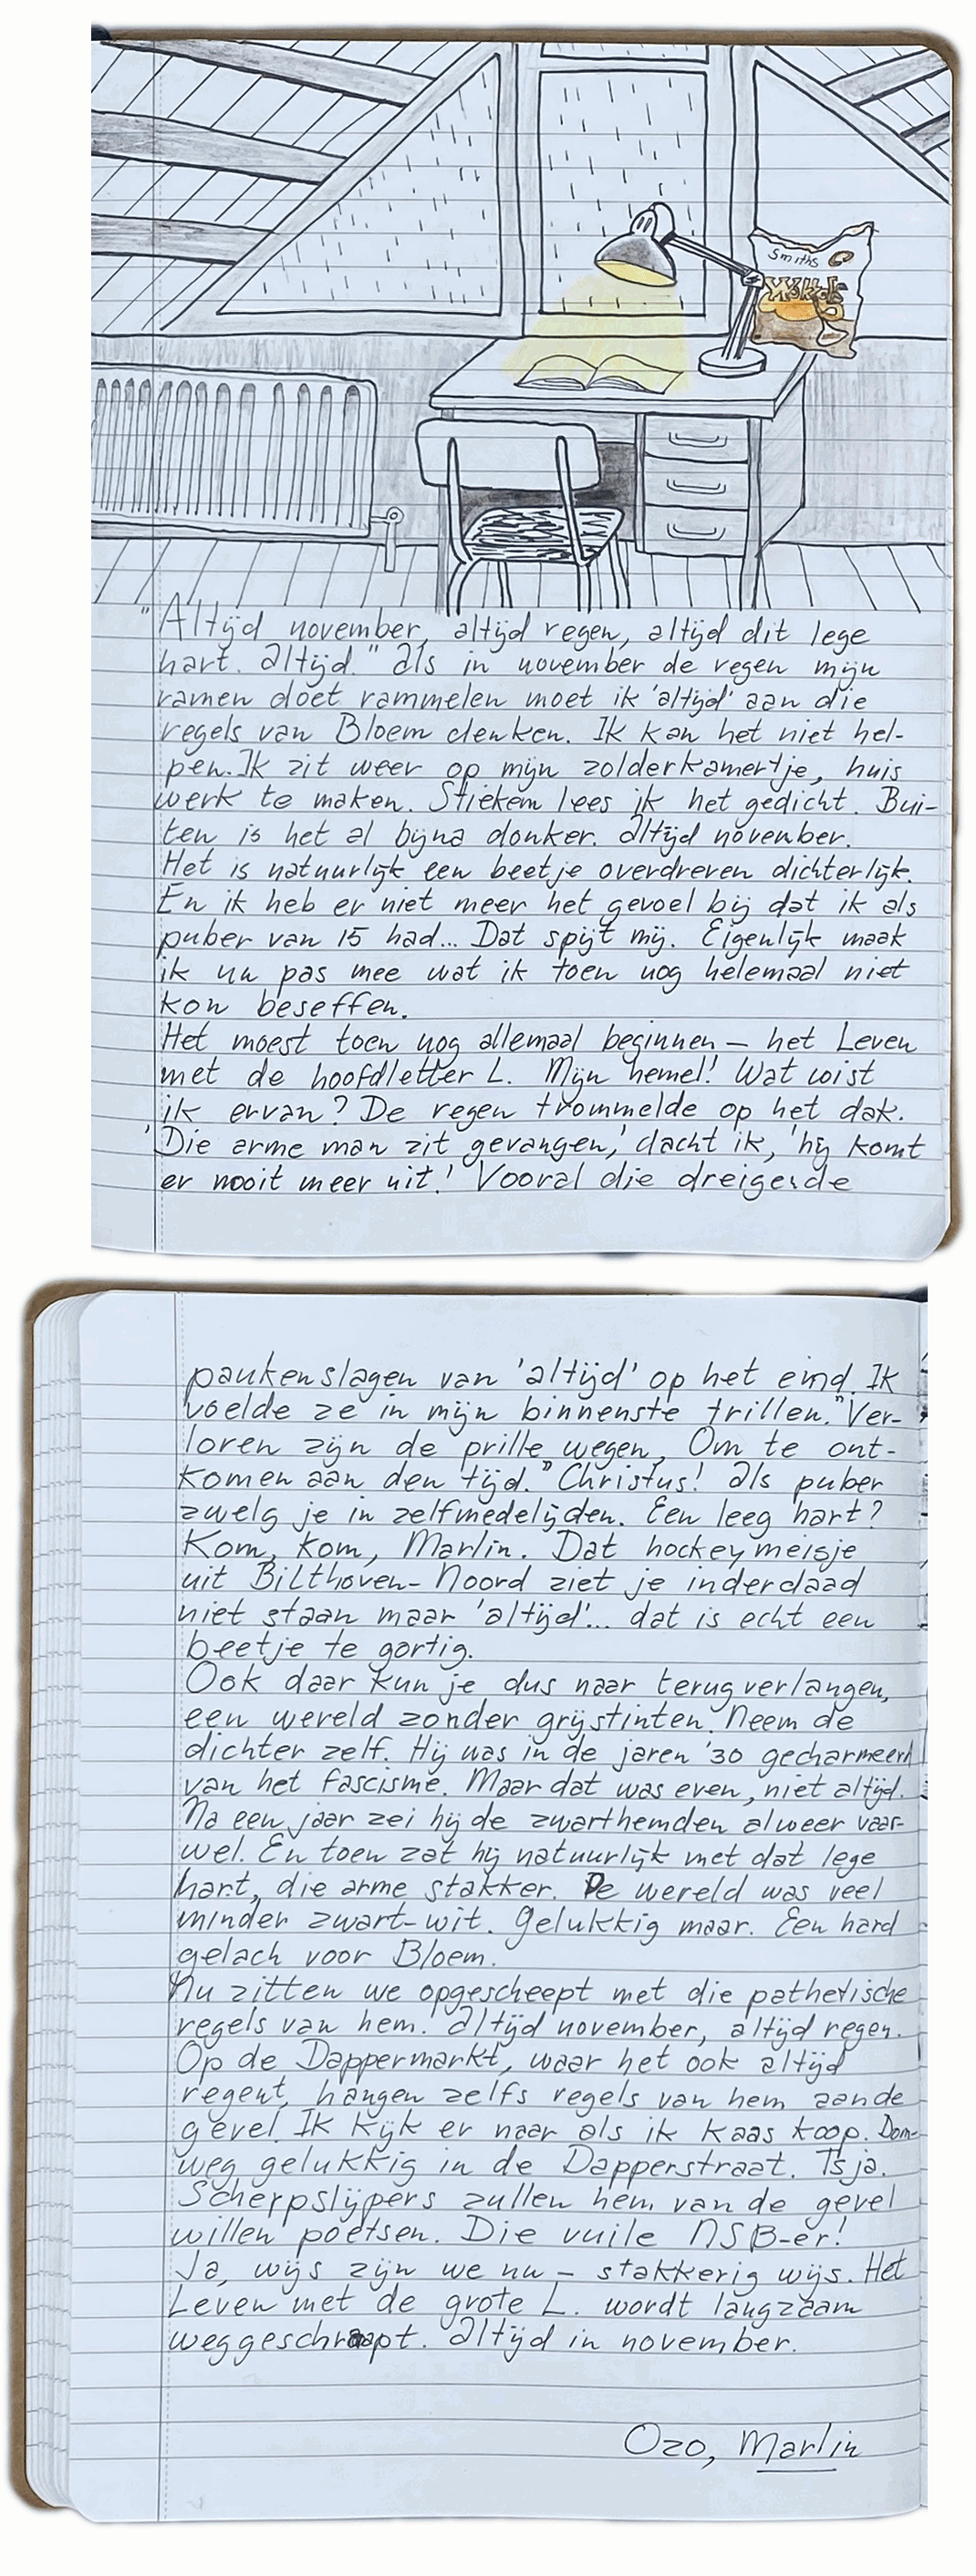 Smiths
Wokkels
"Altijd november, altijd regen, altijd dit lege
hart. Altijd." Als in november de regen mijn
ramen doet rammelen moet ik 'altijd' aan die
regels van Bloem denken. Ik kan het niet hel-
pen. Ik zit weer op mijn zolderkamertje, huis
werk te maken. Stiekem lees ik het gedicht. Bui-
ten is het al bijna donker. Altijd november.
Het is natuurlijk een beetje overdreven dichterlijk.
En ik heb er niet meer het gevoel bij dat ik als
puber van 15 had... Dat spijt mij. Eigenlijk maak
ik nu pas mee wat ik toen nog helemaal niet
kon beseffen.
Het moest toen nog allemaal beginnen – het Leven
met de hoofdletter L. Mijn hemel! Wat wist
ik ervan? De regen trommelde op het dak.
'Die arme man zit gevangen,' dacht ik, 'hij komt
er nooit meer uit.' Vooral die dreigende
paukenslagen van 'altijd' op het eind. Ik
voelde ze in mijn binnenste trillen. "Ver-
loren zijn de prille wegen, Om te ont-
komen aan den tijd." Christus! Als puber
zwelg je in zelfmedelijden. Een leeg hart?
Kom, kom, Marlin. Dat hockeymeisje
uit Bilthoven-Noord ziet je inderdaad
niet staan maar 'altijd'... dat is echt een
beetje te gortig.
Ook daar kun je dus naar terugverlangen,
een wereld zonder grijstinten. Neem de
dichter zelf. Hij was in de jaren '30 gecharmeerd
van het fascisme. Maar dat was even, niet altijd.
Na een jaar zei hij de zwarthemden alweer vaar-
wel. En toen zat hij natuurlijk met dat lege
hart, die arme stakker. De wereld was veel
minder zwart-wit. Gelukkig maar. Een hard
gelach voor Bloem.
Nu zitten we opgescheept met die pathetische
regels van hem. Altijd november, altijd regen.
Op de Dappermarkt, waar het ook altijd
regent, hangen zelfs regels van hem aan de
gevel. Ik kijk er naar als ik kaas koop. Dom-
weg gelukkig in de Dapperstraat. Tsja.
Scherpslijpers zullen hem van de gevel
willen poetsen. Die vuile NSB-er!
Ja, wijs zijn we nu – stakkerig wijs. Het
Leven met de grote L. wordt langzaam
weggeschraapt. Altijd in november.
Ozo, Marlin